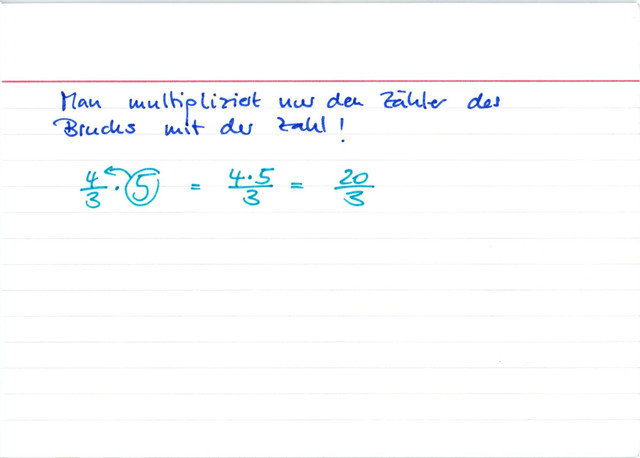 Man multipliziert nur den Zähler des
Bruchs mit der Zahl!
4/3 · 5 = 4·5/3 = 20/3